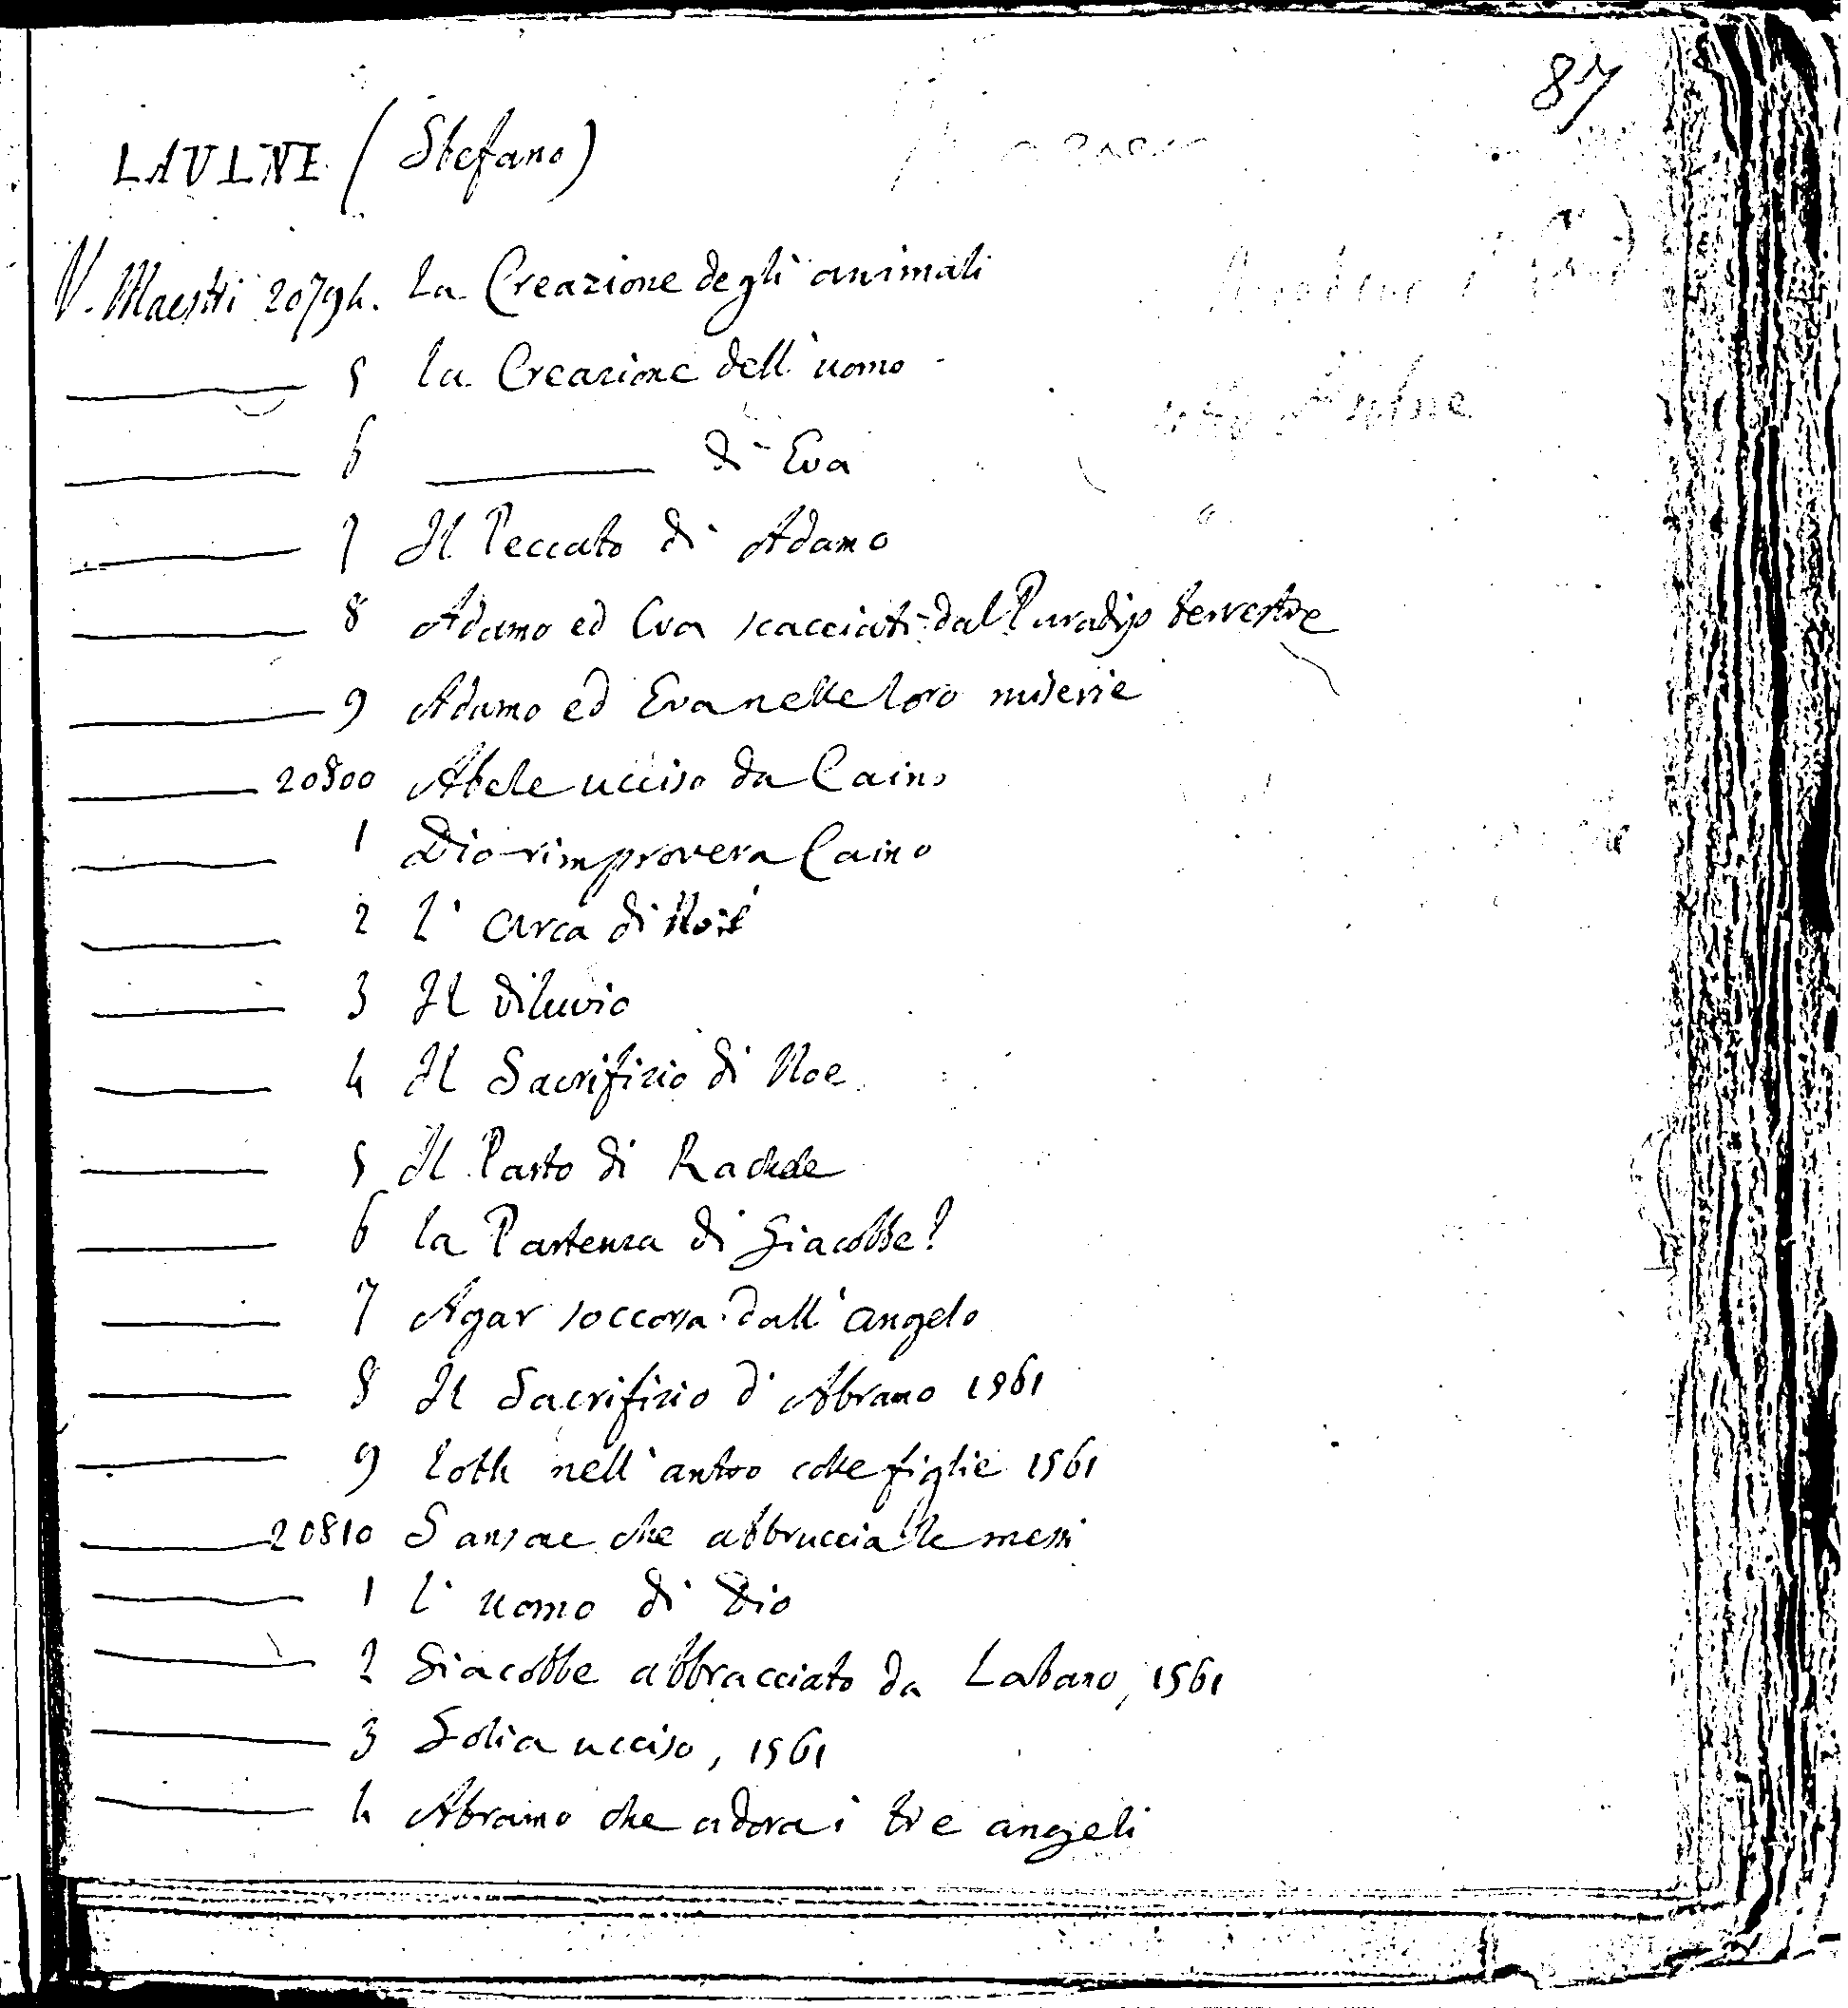 87
LAULNE (Stefano)
V. Maestri 20794. La Creazione degli animali
5 la Creazione dell'uomo
6 di Eva
7 Il Peccato di Adamo
8 Adamo ed Eva scacciati dal Paradiso terrestre
9 Adamo ed Eva nelle loro miserie
20800 Abele ucciso da Caino
1 Dio rimprovera Caino
2 L'arca di Noè
3 Il diluvio
4 Il Sacrifizio di Noe
5 Il Parto di Rachele
6 la Partenza di Giacobbe?
7 Agar soccorsa dall'angelo
8 Il Sacrifizio d'Abramo 1561
9 Loth nell'antro colle figlie 1561
20810 Sansone che abbruccia le messi
1 L'uomo di Dio
2 Giacobbe abbracciato da Labano, 1561
3 Golia ucciso, 1561
4 Abramo che adora i tre angeli